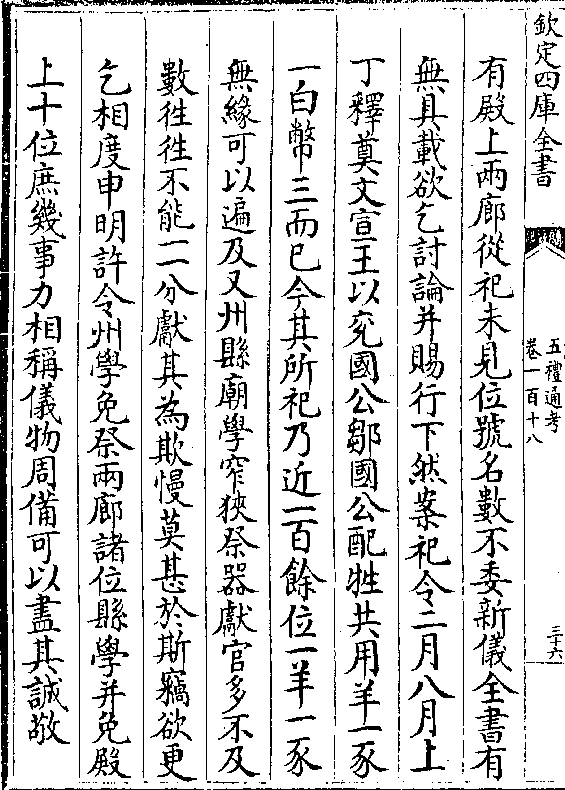 欽定四庫全書
五禮通考
卷一百十八
三十六
有殿上兩廊從祀未見位號名數不委新儀全書有
無具載欲乞討論并賜行下然案祀令二月八月上
丁釋奠文宣王以兖國公鄒國公配牲共用羊一豕
一白幣三而已今其所祀乃近一百餘位一羊一豕
無緣可以遍及又州縣廟學窄狹祭器獻官多不及
數徃徃不能一一分獻其為欺慢莫甚於斯竊欲更
乞相度申明許令州學免祭兩廊諸位縣學并免殿
上十位庶幾事力相稱儀物周備可以盡其誠敬